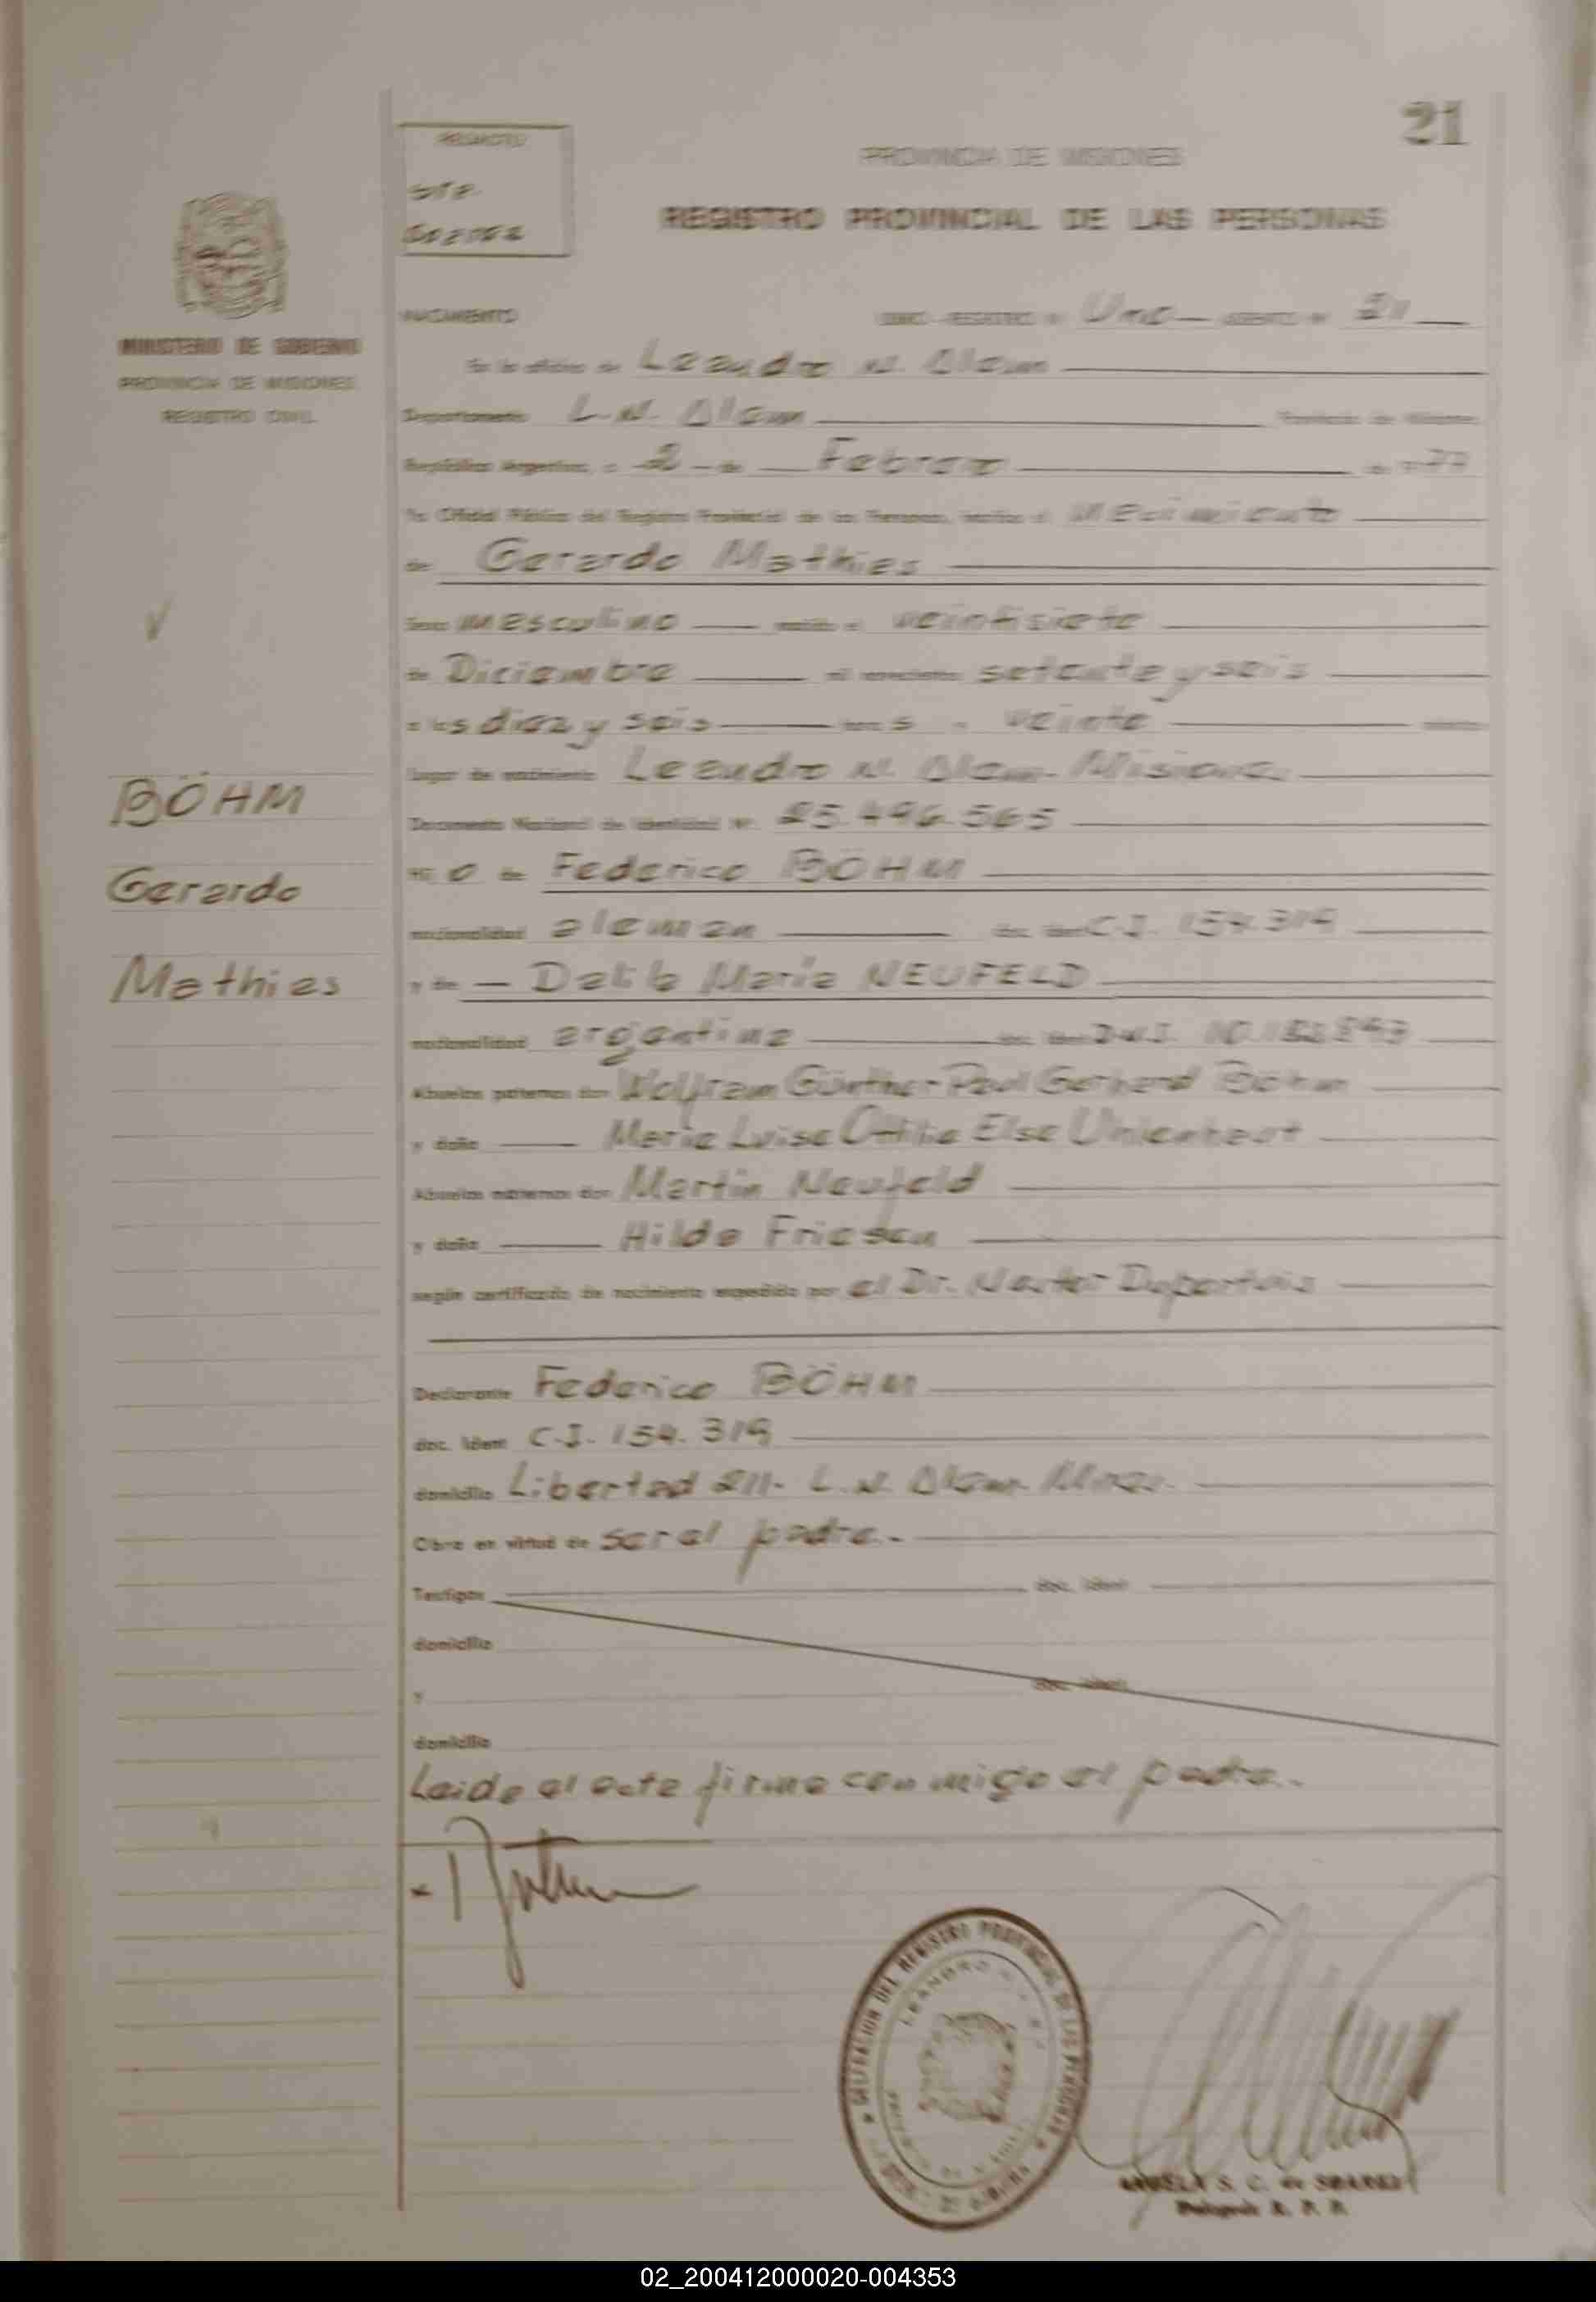 21
PROVINCIA DE MISIONES
REGISTRO PROVINCIAL DE LAS PERSONAS
MINISTERIO DE GOBIERNO
PROVINCIA DE MISIONES
REGISTRO CIVIL
NACIMIENTO Una 21
En la oficina de Leandro N. Alem
Departamento L. N. Alem Provincia de Misiones
República Argentina, a 2 de Febrero de 1977
Yo Oficial Público del Registro Provincial de las Personas, inscribo el Nacimiento
de Gerardo Mathies
Sexo masculino nacido el veintisiete
de Diciembre setenta y seis
a las diez y seis horas veinte
lugar de nacimiento Leandro N. Alem - Misiones
Documento Nacional de Identidad Nº 25.496.565
Hijo de Federico BÖHM
nacionalidad aleman doc. iden C.I. 154.319
y de Dalila Maria NEUFELD
nacionalidad argentina doc. iden D.N.I.
Abuelos paternos don Wolfram Günther Paul Gerhard Böhm
y doña Maria Luise Ottilie Else
Abuelos maternos don Martin Neufeld
y doña Hilda Friesen
según certificado de nacimiento expedido por el Dr.
Declarante Federico BÖHM
doc. iden C.I. 154.319
domicilio Libertad 211- L. N. Alem
Obra en virtud de ser el padre.-
Testigos doc. iden
domicilio
y doc. iden
domicilio
Leida el acta firma conmigo el padre.
BÖHM
Gerardo
Mathies
02_200412000020-004353